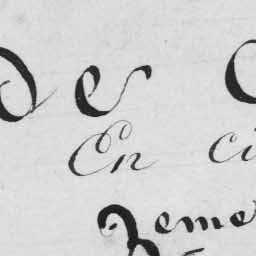 de C
En ci
Zeme